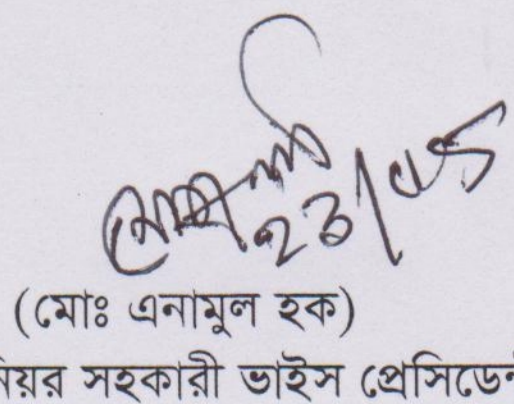 (মোঃ এনামুল হক)
নিয়র সহকারী ভাইস প্রেসিডেন্ট